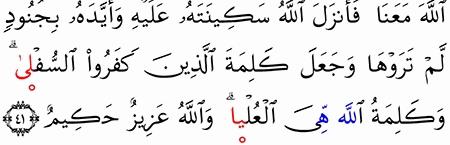 ٱللَّهَ مَعَنَا فَأَنزَلَ ٱللَّهُ سَكِينَتَهُۥ عَلَيْهِ وَأَيَّدَهُۥ بِجُنُودٖ
لَّمْ تَرَوْهَا وَجَعَلَ كَلِمَةَ ٱلَّذِينَ كَفَرُواْ ٱلسُّفْلَىٰۗ
وَكَلِمَةُ ٱللَّه هِّىَ ٱلْعُلْيَاۗ وَٱللَّهُ عَزِيزٌ حَكِيمٌ ﴿٤١﴾